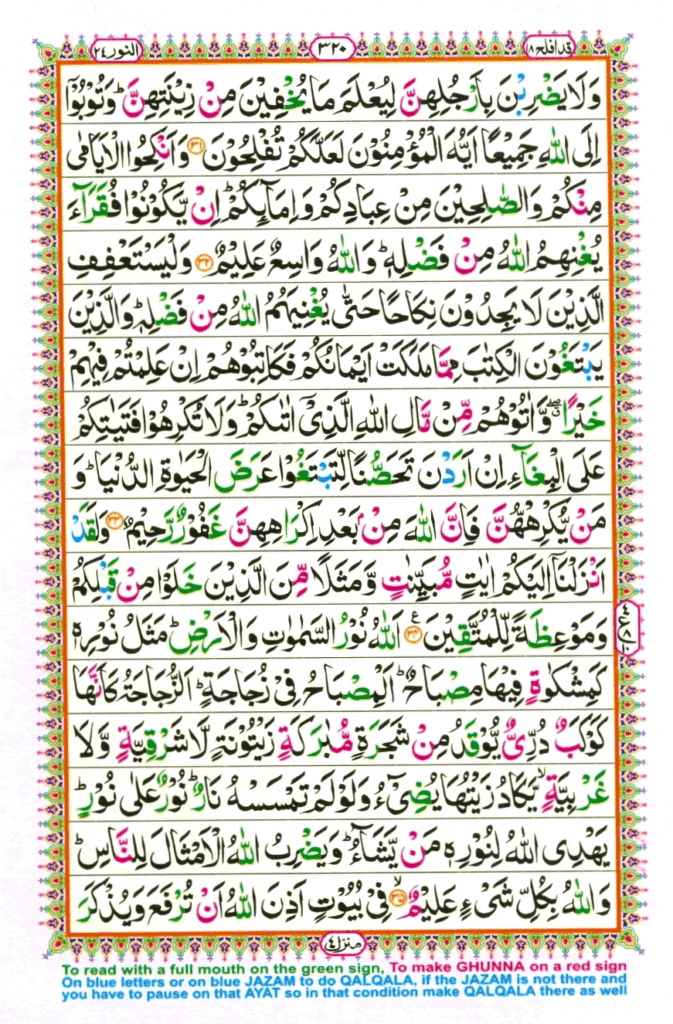 قد افلح ١٨
٣٢٠
النور ٢٤
وَلَا يَضْرِبْنَ بِاَرْجُلِهِنَّ لِيُعْلَمَ مَا يُخْفِيْنَ مِنْ زِيْنَتِهِنَّ ؕ وَتُوْبُوْۤا
اِلَى اللّٰهِ جَمِيْعًا اَيُّهَ الْمُؤْمِنُوْنَ لَعَلَّكُمْ تُفْلِحُوْنَ ﴿٣١﴾ وَاَنْكِحُوا الْاَيَامٰى
مِنْكُمْ وَالصّٰلِحِيْنَ مِنْ عِبَادِكُمْ وَاِمَآئِكُمْ ؕ اِنْ يَّكُوْنُوْا فُقَرَآءَ
يُغْنِهِمُ اللّٰهُ مِنْ فَضْلِهٖ ؕ وَاللّٰهُ وَاسِعٌ عَلِيْمٌ ﴿٣٢﴾ وَلْيَسْتَعْفِفِ
الَّذِيْنَ لَا يَجِدُوْنَ نِكَاحًا حَتّٰى يُغْنِيَهُمُ اللّٰهُ مِنْ فَضْلِهٖ ؕ وَالَّذِيْنَ
يَبْتَغُوْنَ الْكِتٰبَ مِمَّا مَلَكَتْ اَيْمَانُكُمْ فَكَاتِبُوْهُمْ اِنْ عَلِمْتُمْ فِيْهِمْ
خَيْرًا ۖ وَّاٰتُوْهُمْ مِّنْ مَّالِ اللّٰهِ الَّذِيْۤ اٰتٰىكُمْ ؕ وَلَا تُكْرِهُوْا فَتَيٰتِكُمْ
عَلَى الْبِغَآءِ اِنْ اَرَدْنَ تَحَصُّنًا لِّتَبْتَغُوْا عَرَضَ الْحَيٰوةِ الدُّنْيَا ؕ وَ
مَنْ يُّكْرِهْهُّنَّ فَاِنَّ اللّٰهَ مِنْۢ بَعْدِ اِكْرَاهِهِنَّ غَفُوْرٌ رَّحِيْمٌ ﴿٣٣﴾ وَلَقَدْ
اَنْزَلْنَاۤ اِلَيْكُمْ اٰيٰتٍ مُّبَيِّنٰتٍ وَّمَثَلًا مِّنَ الَّذِيْنَ خَلَوْا مِنْ قَبْلِكُمْ
وَمَوْعِظَةً لِّلْمُتَّقِيْنَ ﴿٣٤﴾ ع اَللّٰهُ نُوْرُ السَّمٰوٰتِ وَالْاَرْضِ ؕ مَثَلُ نُوْرِهٖ
كَمِشْكٰوةٍ فِيْهَا مِصْبَاحٌ ؕ اَلْمِصْبَاحُ فِيْ زُجَاجَةٍ ؕ اَلزُّجَاجَةُ كَاَنَّهَا
كَوْكَبٌ دُرِّيٌّ يُّوْقَدُ مِنْ شَجَرَةٍ مُّبٰرَكَةٍ زَيْتُوْنَةٍ لَّا شَرْقِيَّةٍ وَّلَا
غَرْبِيَّةٍ ۙ يَّكَادُ زَيْتُهَا يُضِيْٓءُ وَلَوْ لَمْ تَمْسَسْهُ نَارٌ ؕ نُوْرٌ عَلٰى نُوْرٍ ؕ
يَهْدِى اللّٰهُ لِنُوْرِهٖ مَنْ يَّشَآءُ ؕ وَيَضْرِبُ اللّٰهُ الْاَمْثَالَ لِلنَّاسِ ؕ
وَاللّٰهُ بِكُلِّ شَيْءٍ عَلِيْمٌ ﴿٣٥﴾ ۙ فِيْ بُيُوْتٍ اَذِنَ اللّٰهُ اَنْ تُرْفَعَ وَيُذْكَرَ
منزل ٤
To read with a full mouth on the green sign, To make GHUNNA on a red sign
On blue letters or on blue JAZAM to do QALQALA, if the JAZAM is not there and
you have to pause on that AYAT so in that condition make QALQALA there as well